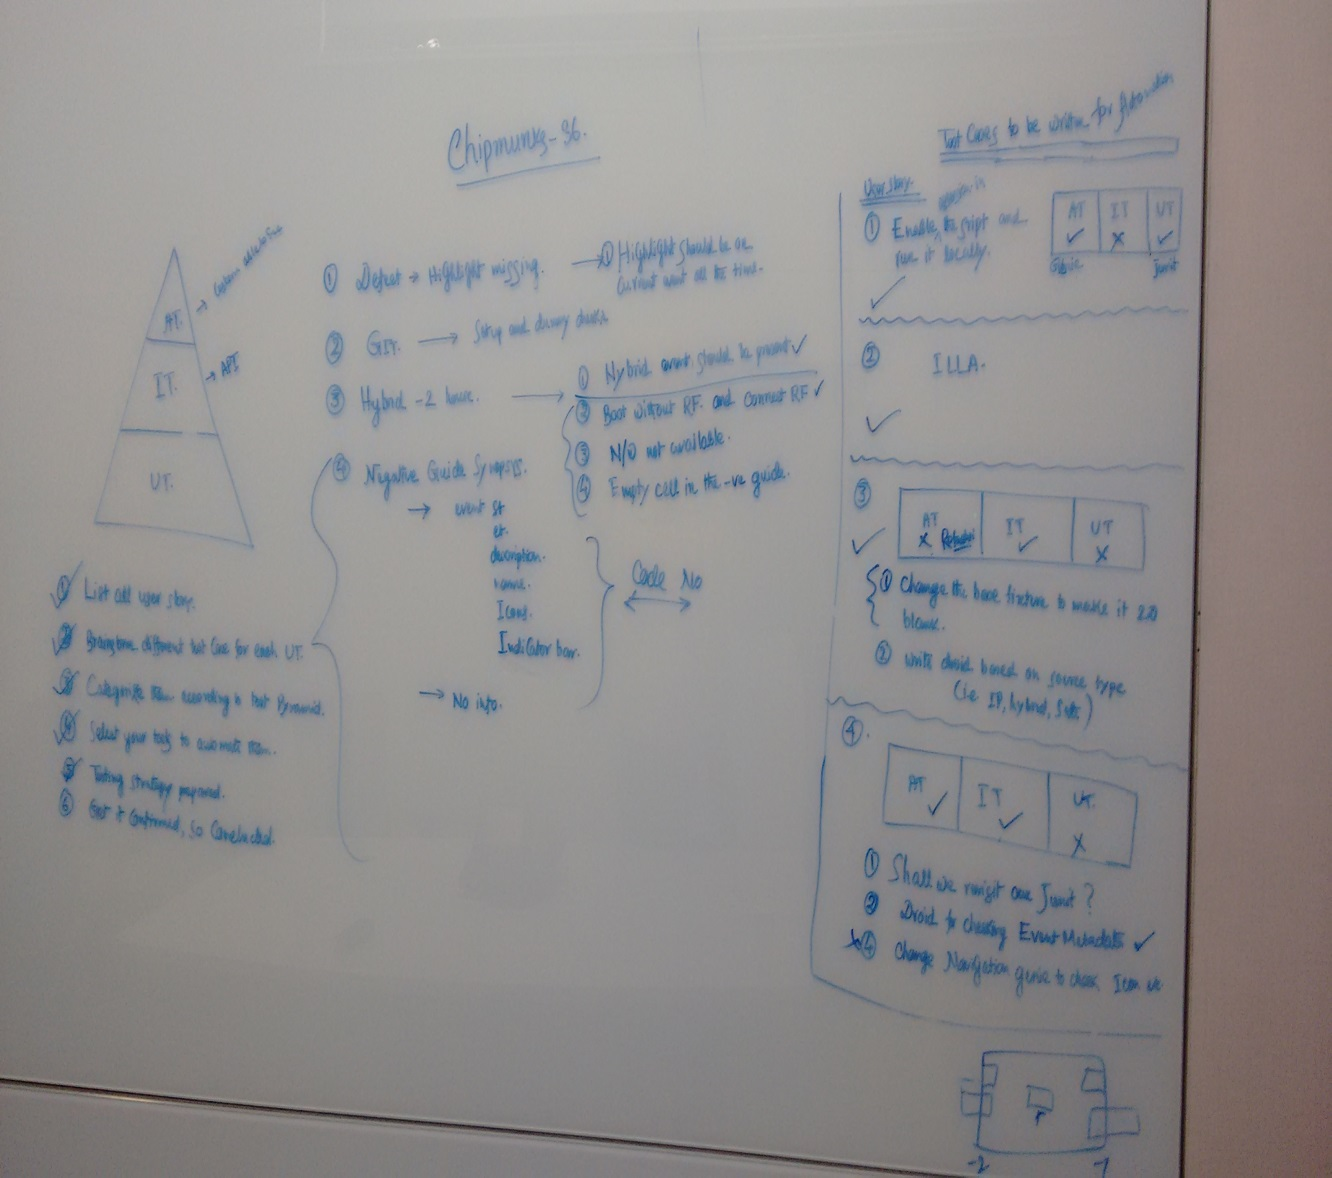 Chipmunks-36.
AT.
IT.
→ API
UT.
① List all user story.
② different test Case for each UT.
③ Categorize them according to test Pyramid.
④ Select your task to automate them.
⑤ Testing strategy prepared.
⑥ Get it Confirmed, so Concluded.
① Defect → Highlight missing.
→ ① Highlight should be on
Current event all the time.
② GIT. → Setup and
③ Hybrid -2 hour. →
① Hybrid event should be present ✓
② Boot without RF. and connect RF ✓
③ N/W not available.
④ Empty cell in the -ve guide.
④ Negative Guide Synopsis.
→ event st
et.
description.
name.
Icons.
Indicator bar.
→ No info.
Code No
Test Cases to be written for Automation
User story.
① Enable the script and
run it locally.
AT ✓ IT x UT ✓
Junit
✓
② ILLA.
✓
③
AT x IT ✓ UT x
✓
① Change the base fixture to make it 2.0
blank.
② Write droid based on source type
(i.e IP, hybrid, )
④.
AT ✓ IT ✓ UT. x
① Shall we revisit our Junit?
② Droid for checking Event Metadata ✓
x④ Change Navigation genie to check Icon
-2